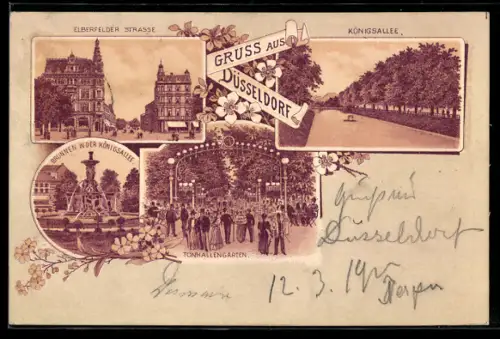 ELBERFELDER STRASSE
GRUSS AUS
DÜSSELDORF
KÖNIGSALLEE,
BRUNNEN IN DER KÖNIGSALLEE
TONHALLENGARTEN.
Düsseldorf
12.3.19